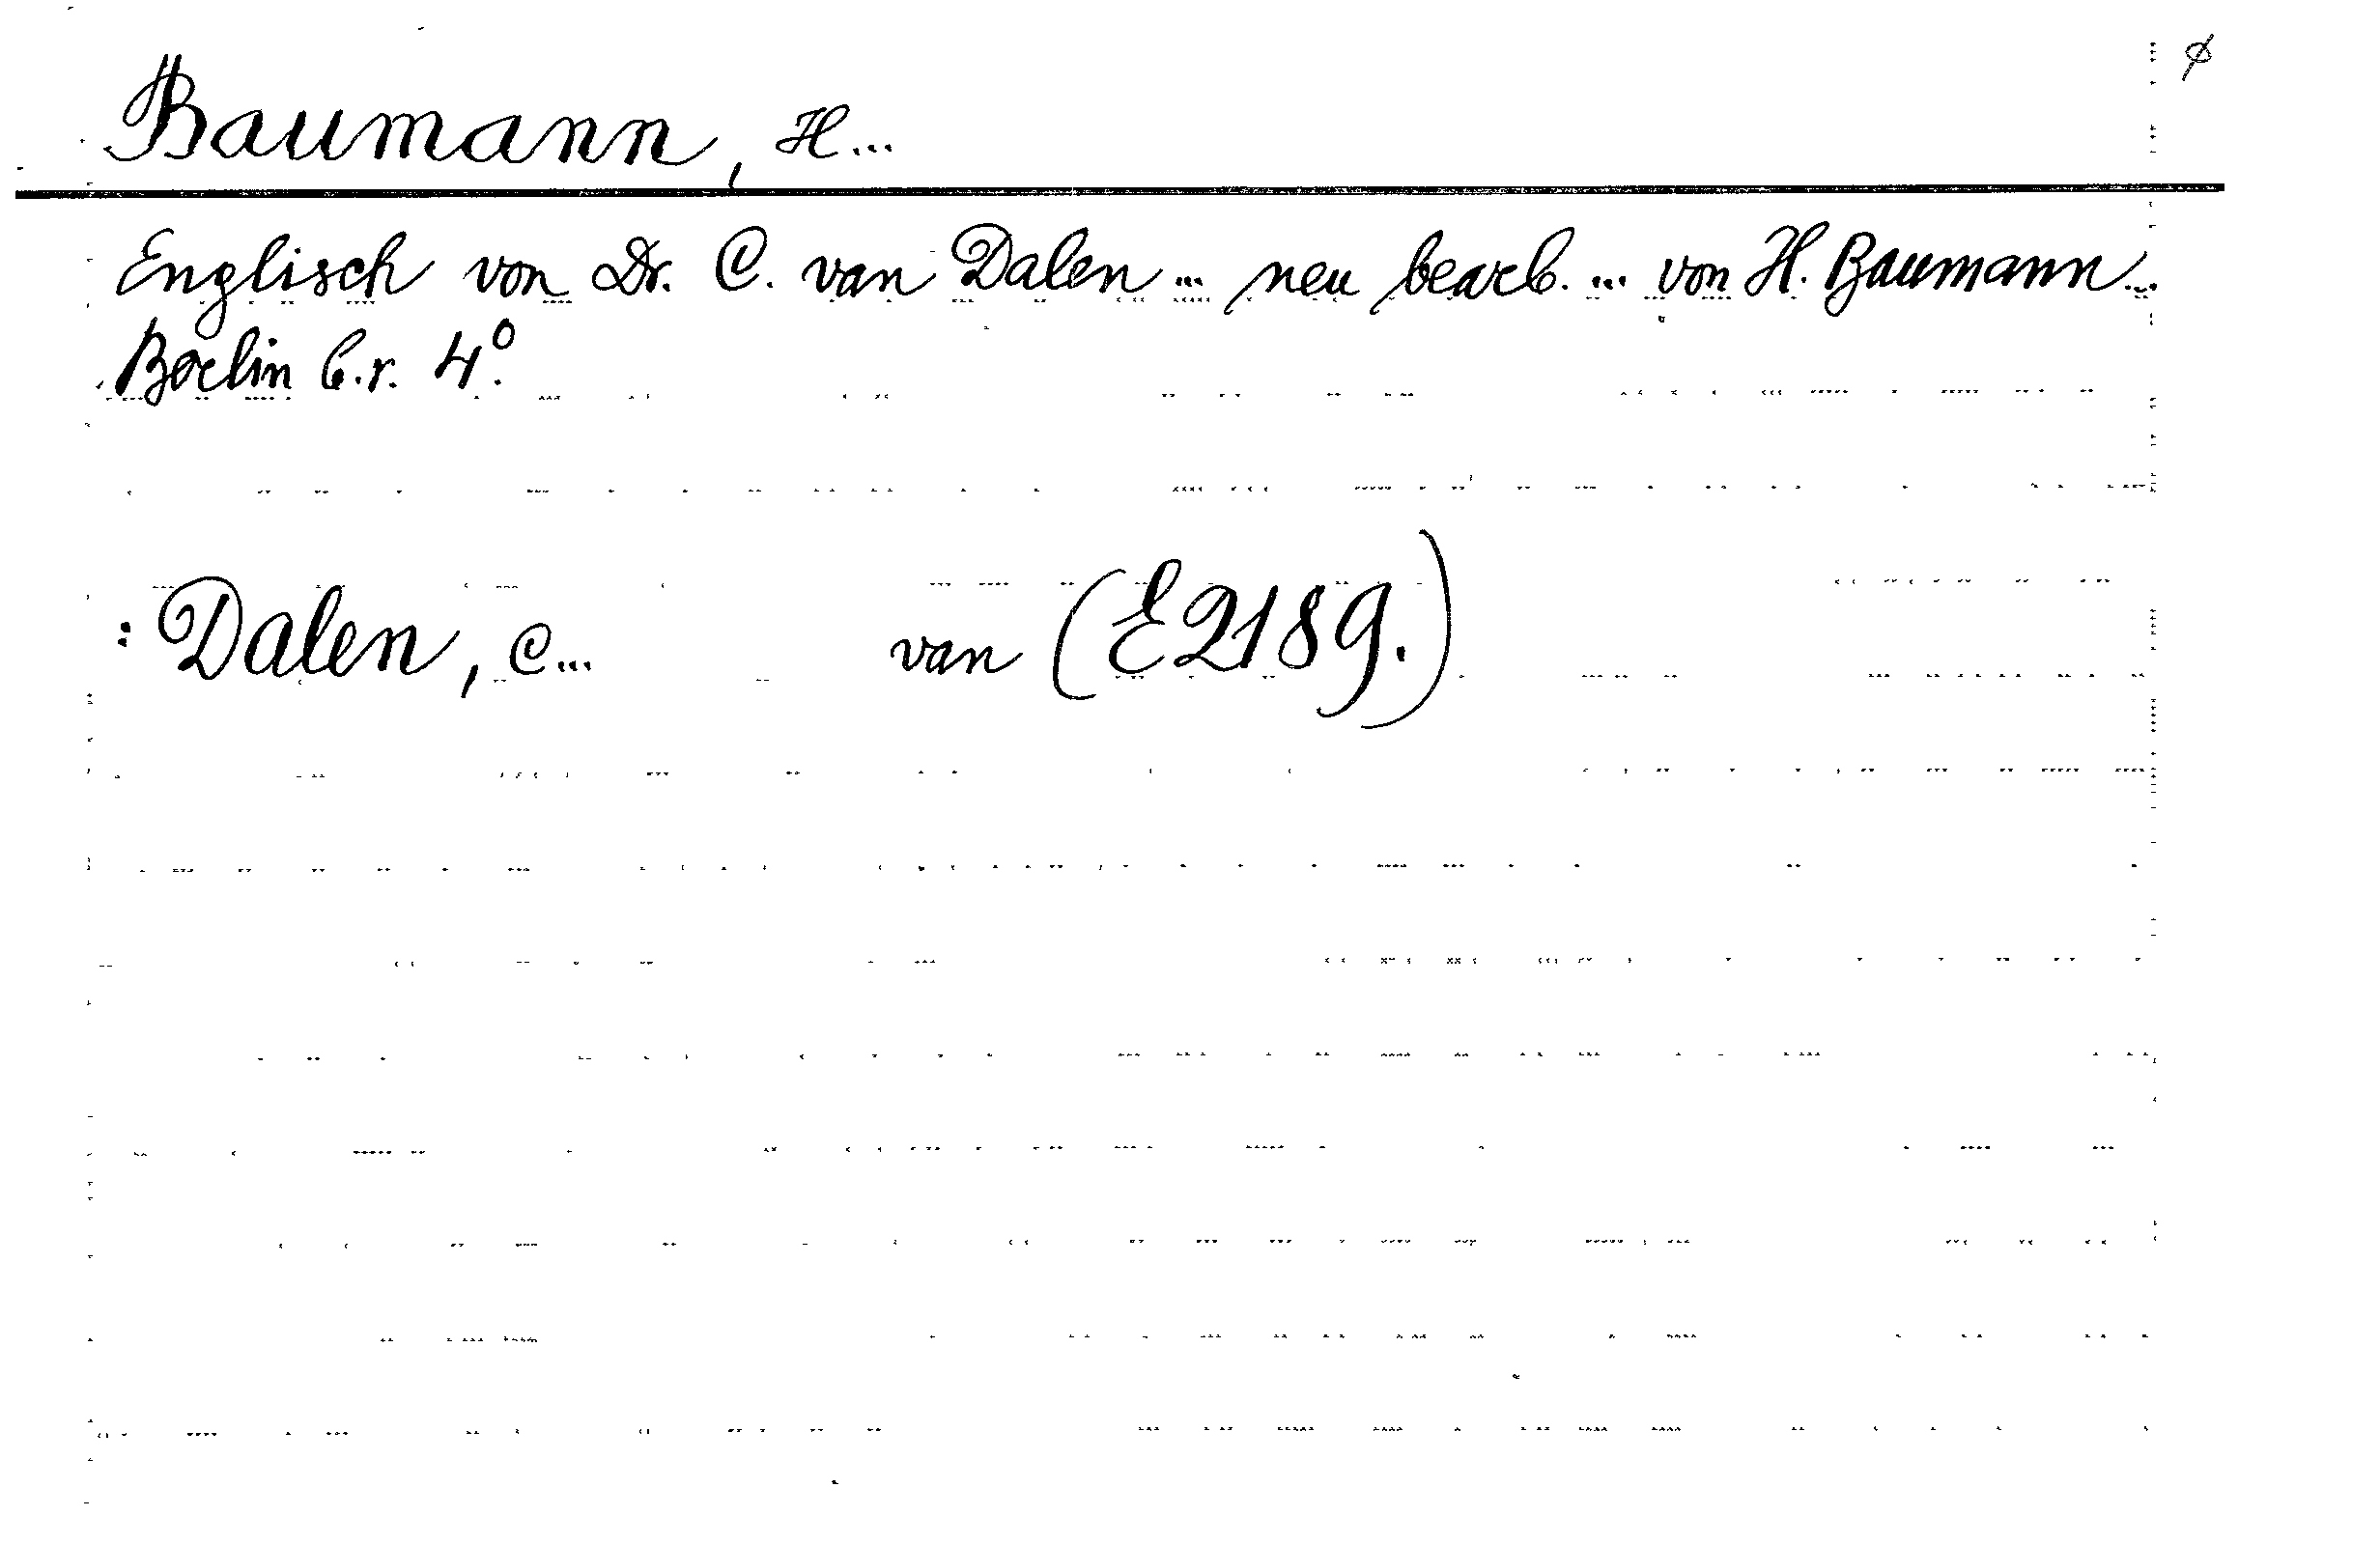 Baumann, H...
Englisch von Dr. C. van Dalen ... neu bearb. ... von H. Baumann...
Berlin b.r. 4°.
: Dalen, C... van (E2189.)